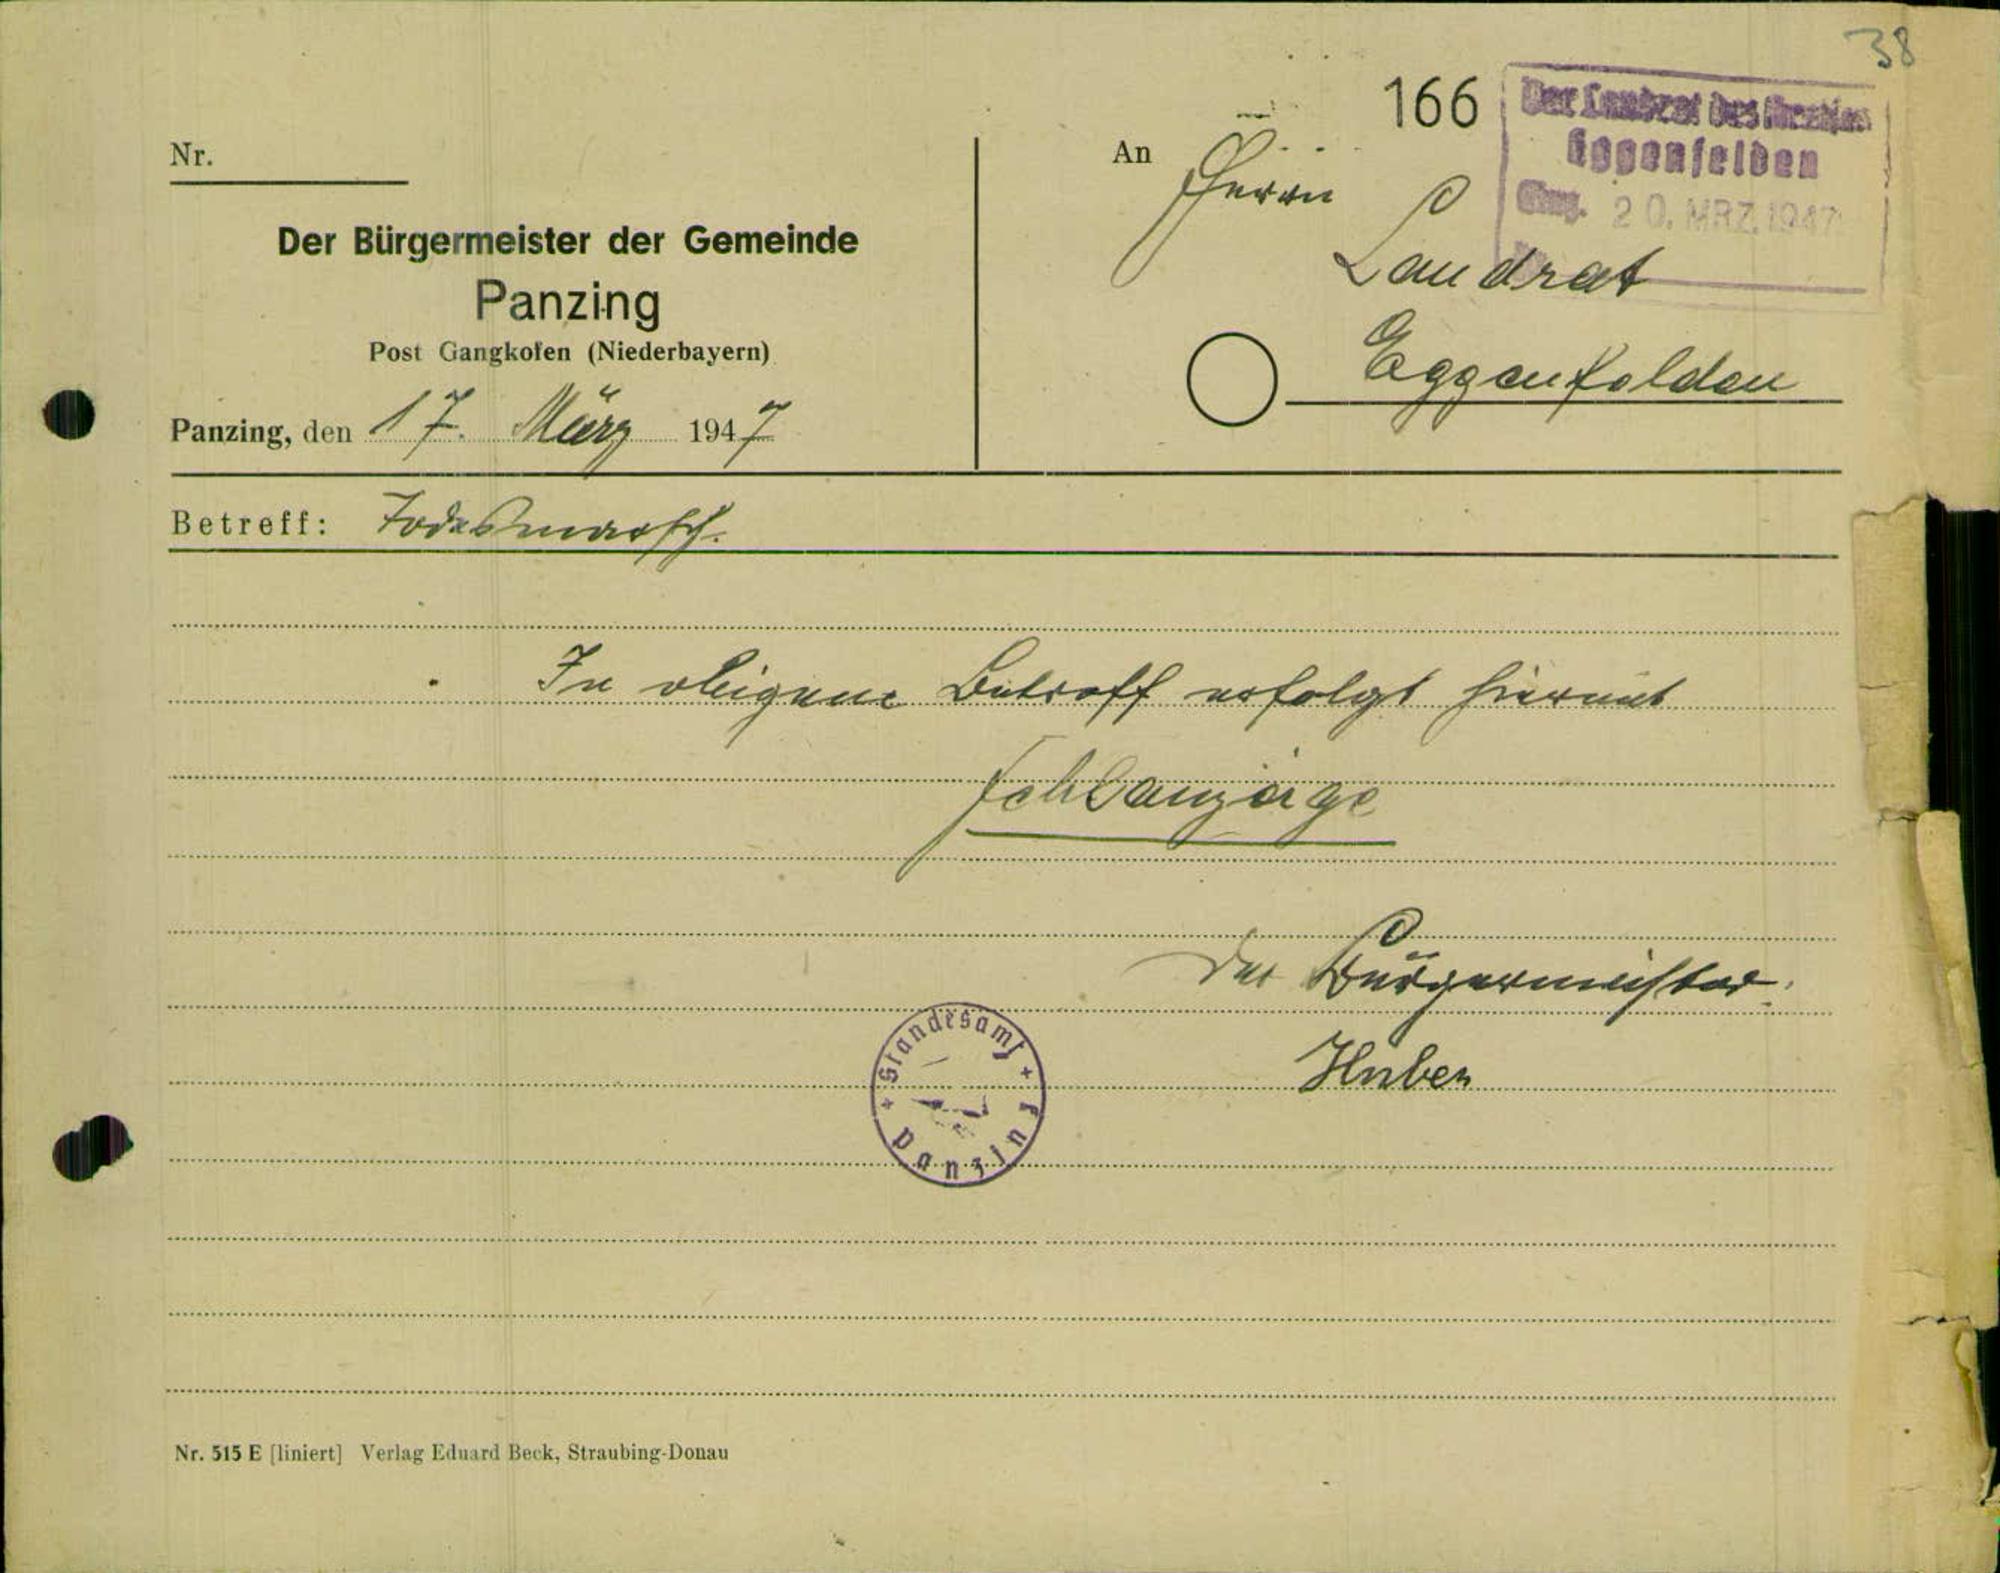 38
166
Der Landrat des Kreises
Eggenfelden
Eing. 20. MRZ. 1947
Nr.
An Herrn
Landrat
Eggenfelden
Der Bürgermeister der Gemeinde
Panzing
Post Gangkofen (Niederbayern)
Panzing, den 17. März 1947
Betreff: Todesmarsch.
In obigem Betreff erfolgt hiermit
Fehlanzeige
Der Bürgermeister:
Huber
Standesamt
Panzing
Nr. 515 E [liniert] Verlag Eduard Beck, Straubing-Donau